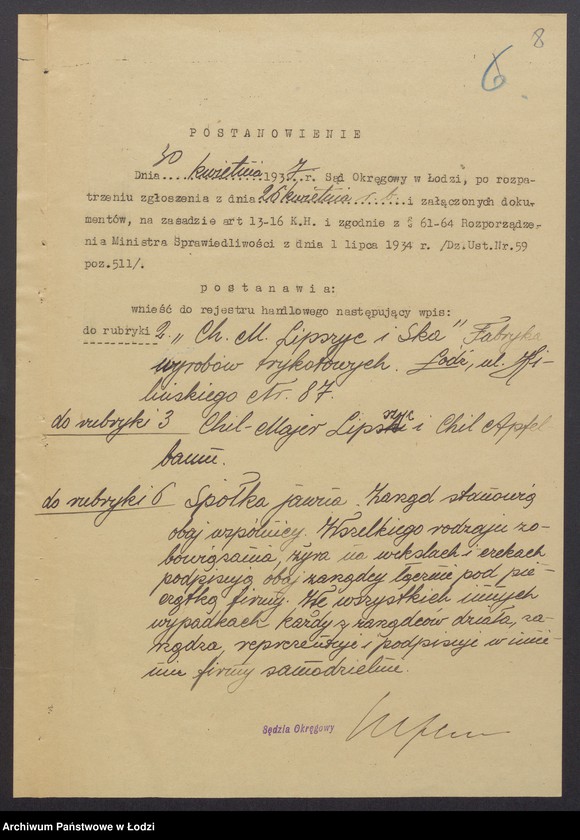 8
6
POSTANOWIENIE
Dnia 30 kwietnia 1937 r. Sąd Okręgowy w Łodzi, po rozpa-
trzeniu zgłoszenia z dnia 26 kwietnia r.b. i załączonych doku-
mentów, na zasadzie art 13-16 K.H. i zgodnie z § 61-64 Rozporządze-
nia Ministra Sprawiedliwości z dnia 1 lipca 1934 r. /Dz.Ust.Nr.59
poz.511/.
postanawia:
wnieść do rejestru handlowego następujący wpis:
do rubryki 2 „Ch. M. Lipszyc i Ska" Fabryka
wyrobów trykotowych. Łódź, ul. Ki-
lińskiego Nr. 87.
do rubryki 3 Chil-Majer Lipszyc i Chil Apfel
baum.
do rubryki 6 Spółka jawna. Zarząd stanowią
obaj wspólnicy. Wszelkiego rodzaju zo-
bowiązania, żyra na wekslach i czekach
podpisują obaj zarządcy łącznie pod pie-
czątką firmy. We wszystkich innych
wypadkach każdy z zarządców działa, za-
rządza, reprezentuje i podpisuje w imie-
niu firmy samodzielnie.
Sędzia Okręgowy
Archiwum Państwowe w Łodzi